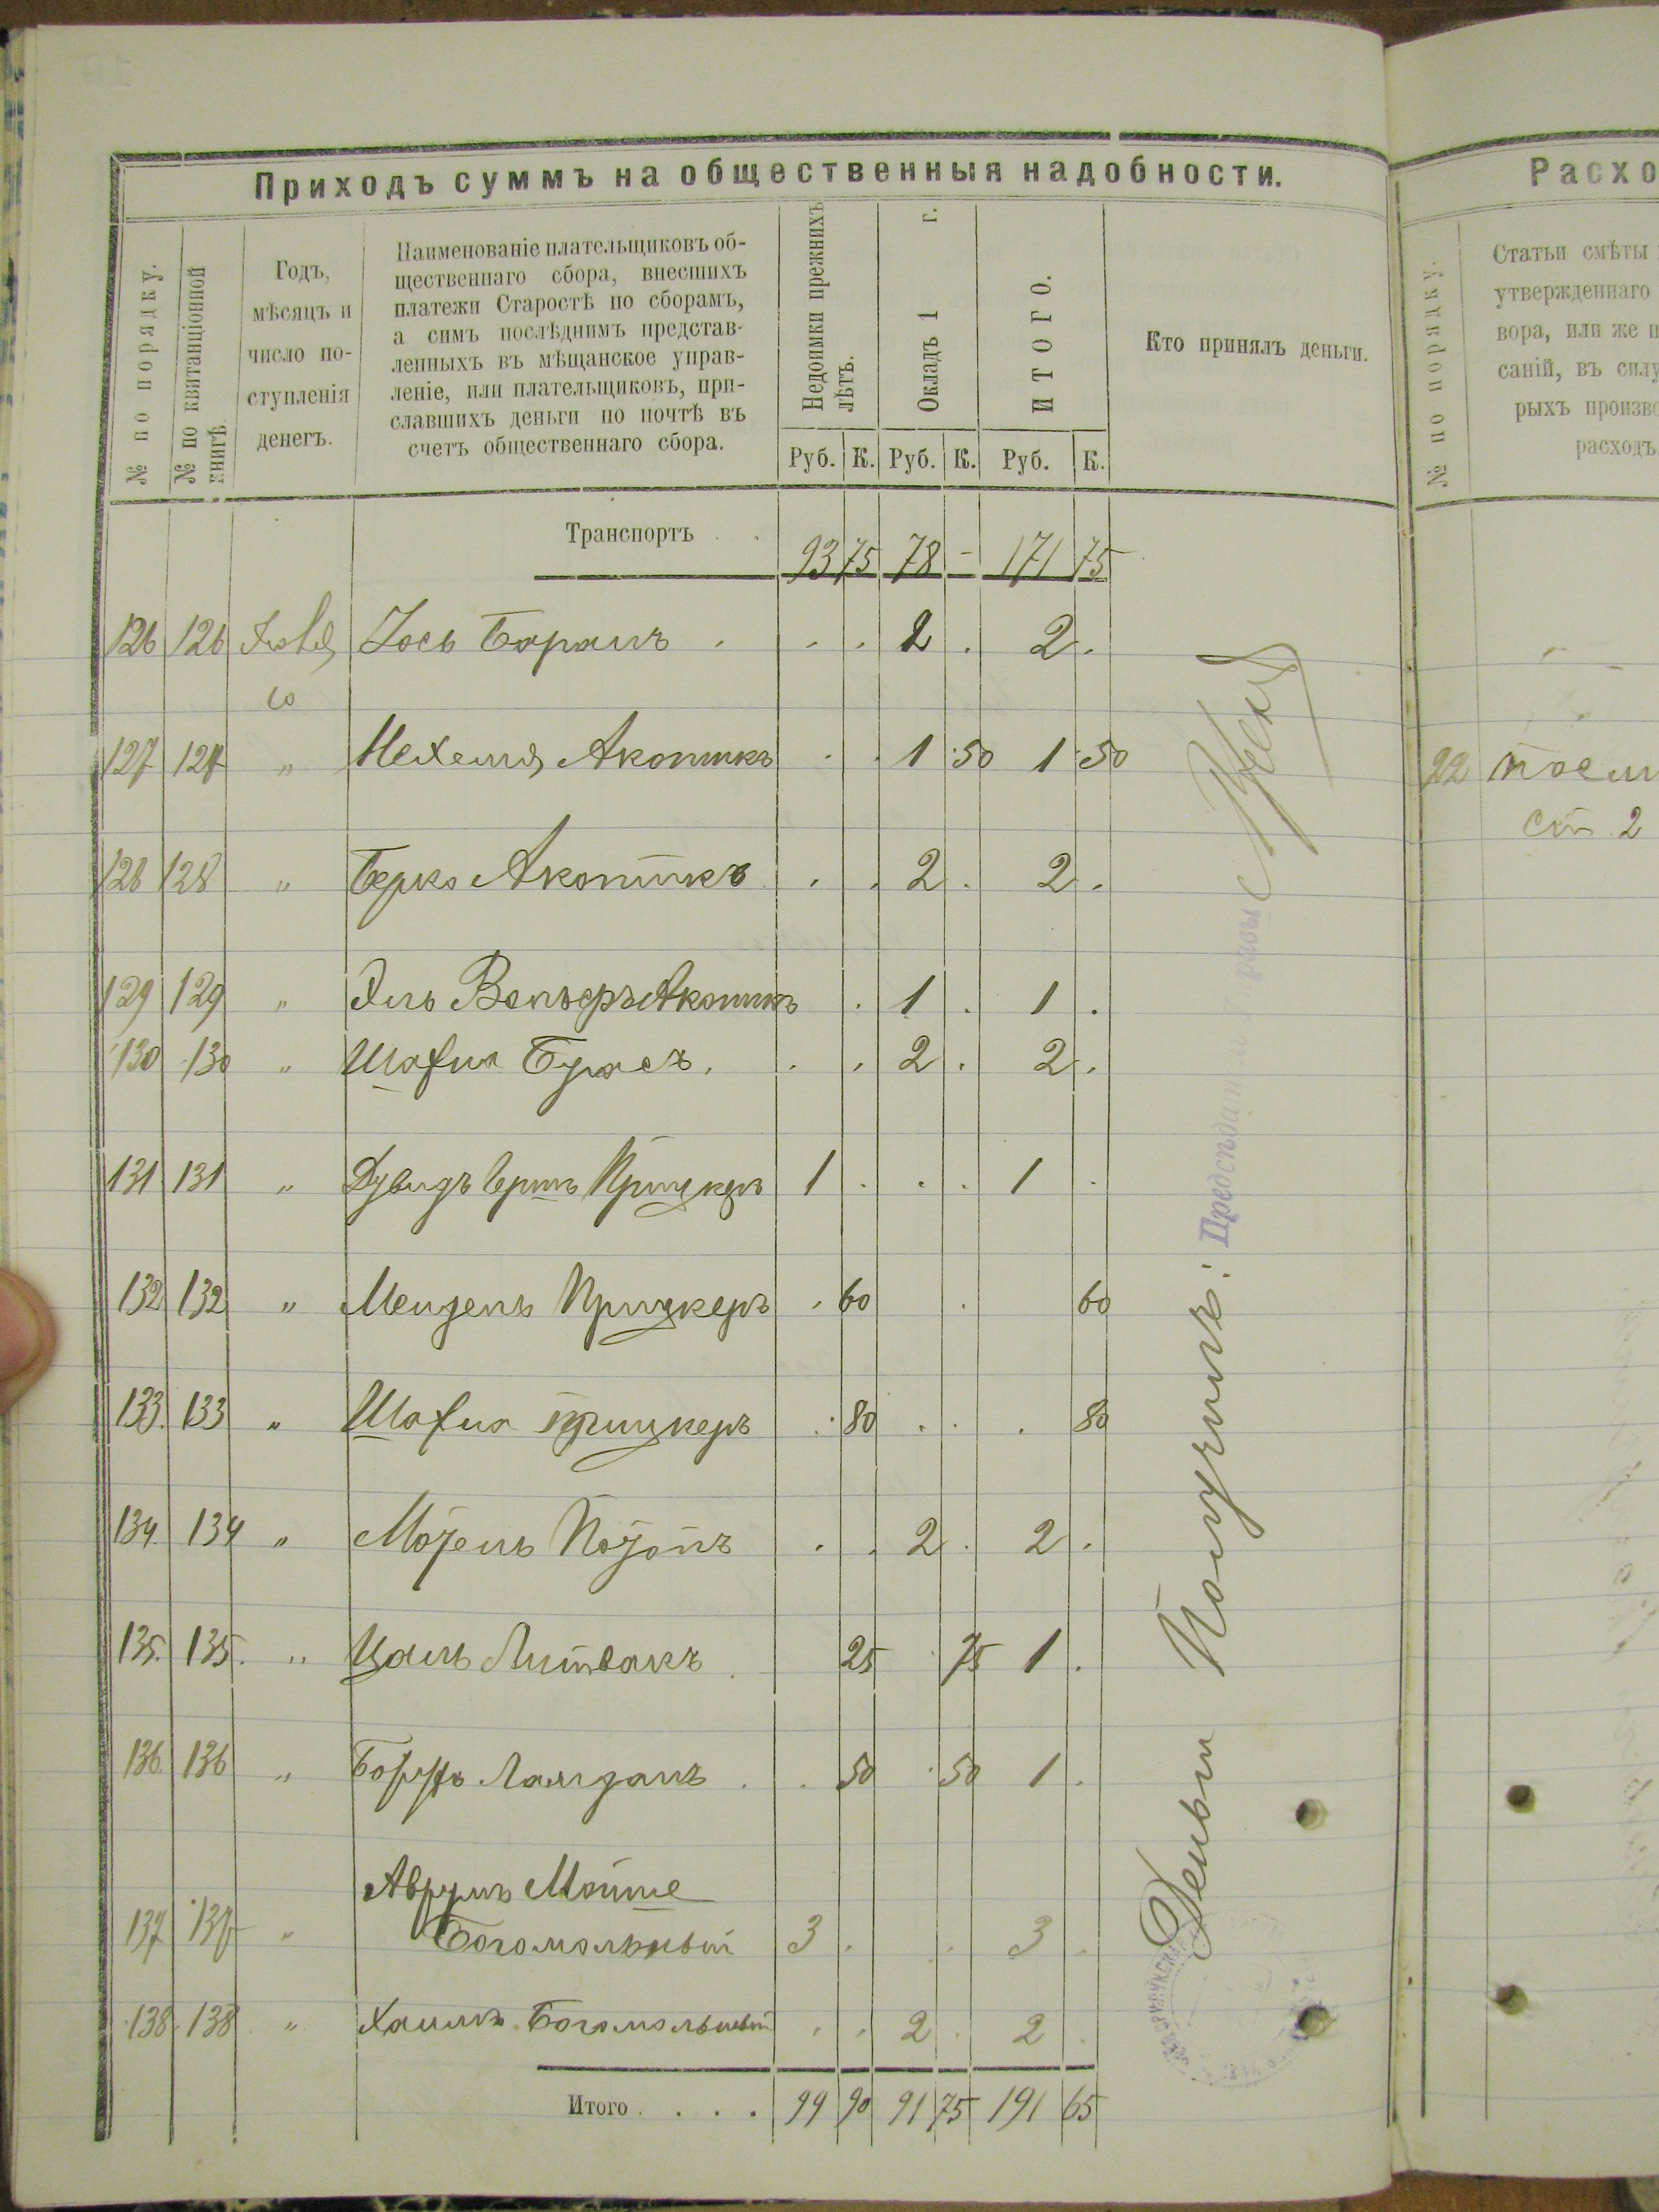 Приходъ суммъ на общественныя надобности.
№ по порядку.
№ по квитанціонной
книгѣ.
Годъ,
мѣсяцъ и
число по-
ступленія
денегъ.
Наименованіе плательщиковъ об-
щественнаго сбора, внесшихъ
платежи Старостѣ по сборамъ,
а симъ послѣднимъ представ-
ленныхъ въ мѣщанское управ-
леніе, или плательщиковъ, при-
славшихъ деньги по почтѣ въ
счетъ общественнаго сбора.
Недоимки прежнихъ
лѣтъ.
Окладъ 1 г.
ИТОГО.
Кто принялъ деньги.
Руб. К. Руб. К. Руб. К.
Транспортъ . . 93 75 78 – 171 75
126 126 Іюля Іось Баранъ . . . 2 . 2 .
10
127 127 „ Нехемія Акопникъ . . 1 50 1 50
128 128 „ Берко Акопникъ . . 2 . 2 .
129 129 „ Эль Вольфъ Акопникъ . 1 . 1 .
130 130 „ Шафиа . . . 2 . 2 .
131 131 „ Дувидъ Гершъ Прицкеръ 1 . . . 1 .
132 132 „ Мендель Прицкеръ . 60 . 60
133. 133 „ Шафиа Прицкеръ . 80 . . . 80
134. 134 „ . . 2 . 2 .
135. 135. „ Цаль Литвакъ . 25 . 75 1 .
136. 136 „ . . 50 . 50 1 .
Аврумъ Мошко
137 137 „ Богомольный 3 . . 3 .
138. 138 „ Хаимъ Богомольный . . 2 . 2 .
Итого . . . . 99 90 91 75 191 65
Деньги Получилъ: Предсѣдатель управы
Расхо
№ по порядку.
Статьи смѣты
утвержденнаго
вора, или же п
саній, въ силу
рыхъ произво
расходъ
22
ст. 2